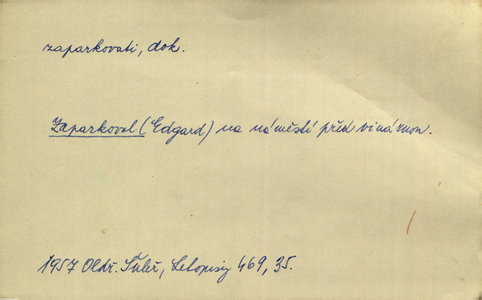 zaparkovati, dok.
Zaparkoval (Edgard) na náměstí před vinárnou.
1957 Oldř. Šuleř, Letopisy 469, 35.